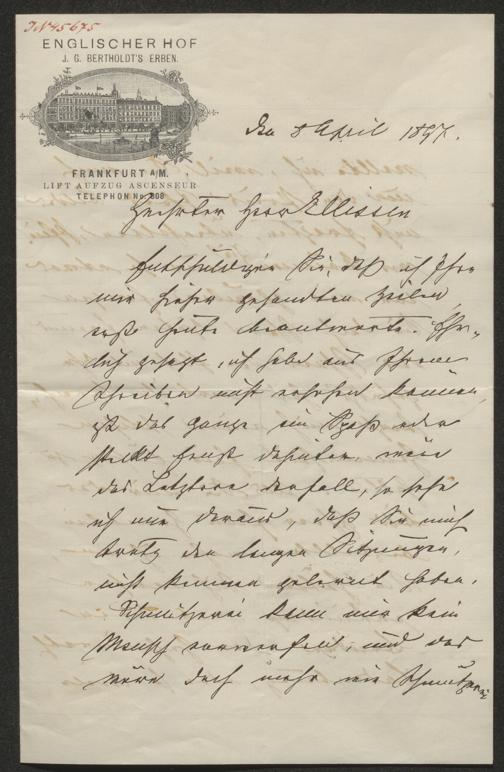 J.N 45675
ENGLISCHER HOF
J. G. BERTHOLDT'S ERBEN.
FRANKFURT a/M.
LIFT AUFZUG ASCENSEUR
TELEPHON No. 808
Den 8 April 1897.
Geehrter Herr Ellissen
Entschuldigen Sie, daß ich Ihre
mir hieher gesandten Zeilen
erst heute beantworte. Ehr-
lich gesagt, ich habe aus Ihrem
Schreiben nicht ersehen können,
ist das ganze ein Spaß oder
steckt Ernst dahinter, wäre
das Letztere der Fall, so sehe
ich nur daraus, daß Sie mich
trotz den langen Sitzungen,
nicht kennen gelernt haben.
Schmutzerei kann mir kein
Mensch vorwerfen, und das
wäre doch mehr wie Schmutzerei